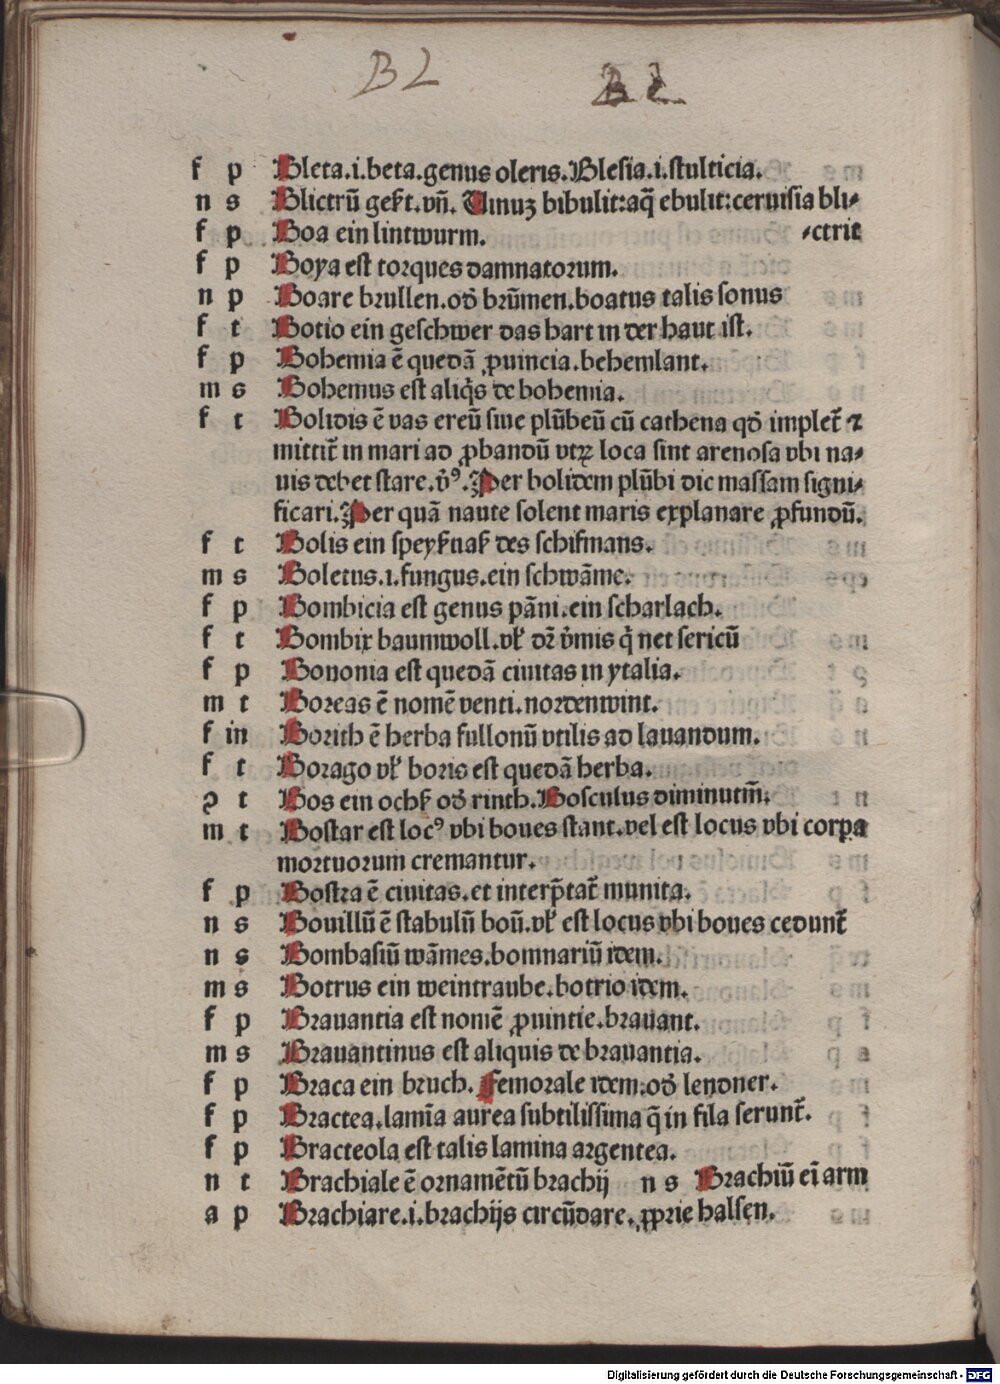 BL BL
f p Bleta.i.beta.genus oleris.Blesia.i.stulticia.
n s Blictrū gekt.vn̄. Uinuʒ bibulit:aq̄ ebulit:ceruisia bli⸗
f p Boa ein lintwurm. ⸗ctrit
f p Boya est torques damnatorum.
n p Boare brullen.od̄ brūmen.boatus talis sonus
f t Botio ein geschwer das hart in der haut ist.
f p Bohemia ē quedā ꝓuincia.behemlant.
m s Bohemus est aliq̇s de bohemia.
f t Bolidis ē vas ereū siue plūbeū cū cathena qd̄ implet̄ ⁊
mittit̄ in mari ad ꝓbandū vtꝝ loca sint arenosa vbi na⸗
uis debet stare.v̇ꝰ.Per bolidem plūbi dic massam signi⸗
ficari.Per quā naute solent maris explanare ꝓfundū.
f t Bolis ein speyknak des schifmans.
m s Boletus.i.fungus.ein schwāme.
f p Bombicia est genus pāni.ein scharlach.
f t Bombix baumwoll.vl̄ dr̄ v̇mis q̇ net sericū
f p Bononia est quedā ciuitas in ytalia.
m t Boreas ē nomē venti.nordenwint.
f in Borith ē herba fullonū vtilis ad lauandum.
f t Borago vl̄ boris est quedā herba.
ꝯ t Bos ein ochs̄ od̄ rinth.Bosculus diminutiū̄.
m t Bostar est locꝰ vbi boues stant.vel est locus vbi corpa
mortuorum cremantur.
f p Bostra ē ciuitas.et interp̄tat̄ munita.
n s Bouillū ē stabulū boū.vl̄ est locus vbi boues cedunt̄
n s Bombasiū wāmes.bomnariū idem.
m s Botrus ein weintraube.botrio idem.
f p Brauantia est nomē ꝓuintie.brauant.
m s Brauantinus est aliquis de brauantia.
f p Braca ein bruch. Femorale idem.od̄ lendner.
f p Bractea.lamīa aurea subtilissima q̄ in fila serunt̄.
f p Bracteola est talis lamina argentea.
n t Brachiale ē ornamētū brachij n s Brachiū eī arm
a p Brachiare.i.brachijs circūdare.ꝓprie halsen.
Digitalisierung gefördert durch die Deutsche Forschungsgemeinschaft - DFG